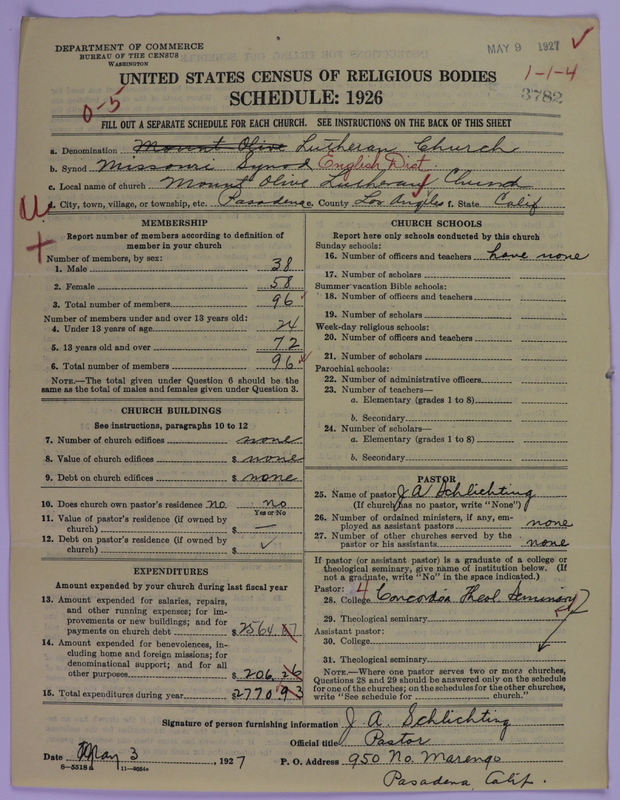 DEPARTMENT OF COMMERCE
BUREAU OF THE CENSUS
WASHINGTON
MAY 9 1927
UNITED STATES CENSUS OF RELIGIOUS BODIES
1-1-4
SCHEDULE: 1926
3782
0-5
FILL OUT A SEPARATE SCHEDULE FOR EACH CHURCH. SEE INSTRUCTIONS ON THE BACK OF THIS SHEET
a. Denomination Mount Olive Lutheran Church
b. Synod Missouri Synod English Dist.
c. Local name of church Mount Olive Lutheran Church
d. City, town, village, or township, etc. Pasadena e. County Los Angeles f. State Calif
MEMBERSHIP
Report number of members according to definition of
member in your church
Number of members, by sex:
1. Male 38
2. Female 58
3. Total number of members 96
Number of members under and over 13 years old:
4. Under 13 years of age 24
5. 13 years old and over 72
6. Total number of members 96
NOTE.—The total given under Question 6 should be the
same as the total of males and females given under Question 3.
CHURCH BUILDINGS
See instructions, paragraphs 10 to 12
7. Number of church edifices none
8. Value of church edifices $ none
9. Debt on church edifices $ none
10. Does church own pastor's residence no. no
Yes or No
11. Value of pastor's residence (if owned by
church) $ —
12. Debt on pastor's residence (if owned by
church) $
EXPENDITURES
Amount expended by your church during last fiscal year
13. Amount expended for salaries, repairs,
and other running expenses; for im-
provements or new buildings; and for
payments on church debt $ 2564.87
14. Amount expended for benevolences, in-
cluding home and foreign missions; for
denominational support; and for all
other purposes $ 206.26
15. Total expenditures during year $ 2770.93
CHURCH SCHOOLS
Report here only schools conducted by this church
Sunday schools:
16. Number of officers and teachers have none
17. Number of scholars
Summer vacation Bible schools:
18. Number of officers and teachers
19. Number of scholars
Week-day religious schools:
20. Number of officers and teachers
21. Number of scholars
Parochial schools:
22. Number of administrative officers
23. Number of teachers—
a. Elementary (grades 1 to 8)
b. Secondary
24. Number of scholars—
a. Elementary (grades 1 to 8)
b. Secondary
PASTOR
25. Name of pastor J A Schlichting
(If church has no pastor, write "None")
26. Number of ordained ministers, if any, em-
ployed as assistant pastors none
27. Number of other churches served by the
pastor or his assistants none
If pastor (or assistant pastor) is a graduate of a college or
theological seminary, give name of institution below. (If
not a graduate, write "No" in the space indicated.)
Pastor: 4
28. College Concordia Theol. Seminary
29. Theological seminary
Assistant pastor:
30. College
31. Theological seminary
NOTE.—Where one pastor serves two or more churches,
Questions 28 and 29 should be answered only on the schedule
for one of the churches; on the schedules for the other churches,
write "See schedule for church."
Signature of person furnishing information J. A. Schlichting
Official title Pastor
Date May 3, 1927 P. O. Address 950 No. Marengo
8-5518a
Pasadena, Calif.